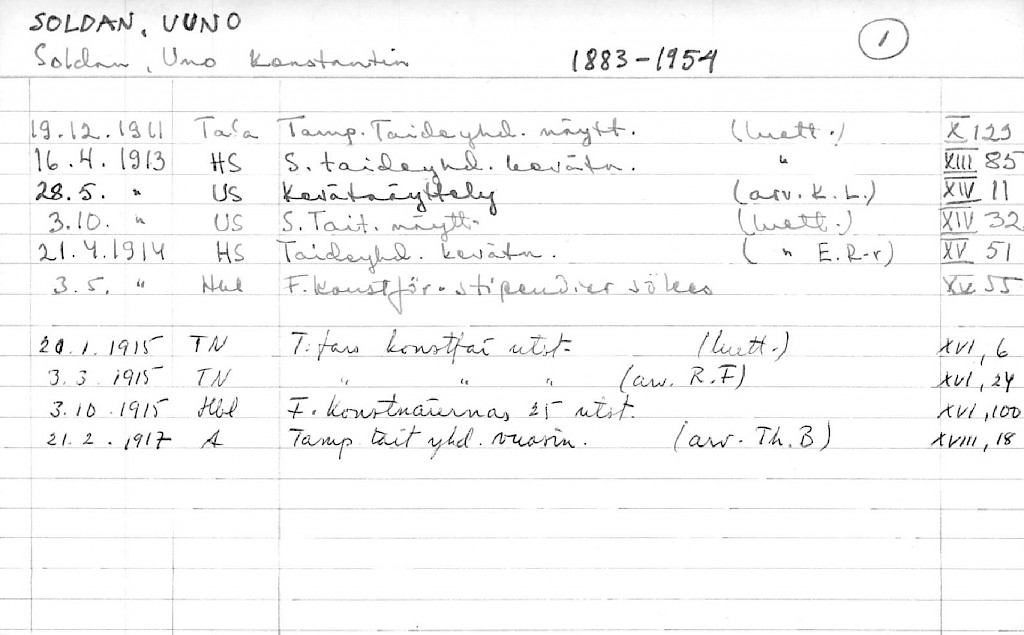 SOLDAN, UUNO 1
Soldan, Uno Konstantin 1883-1954
19.12.1911 Ta:a Tamp. Taideyhd. näytt. (luett.) X 129
16.4.1913 HS S. taideyhd. kevätn. " XIII 85
28.5. " US Kevätnäyttely (arv. K.L.) XIV 11
3.10. " US S. Tait. näytt. (luett.) XIV 32
21.4.1914 HS Taideyhd. kevätn. ( " E.R-r) XV 51
3.5. " Hbl F. Konstför. stipendier sökes XV 55
20.1.1915 TN T:fors konstför utst. (luett.) XVI, 6
3.3.1915 TN " " " (arv. R.F) XVI, 24
3.10.1915 Hbl F. Konstnärernas 25 utst. XVI, 100
21.2.1917 A Tamp. tait yhd. vuosin. (arv. Th.B) XVIII, 18